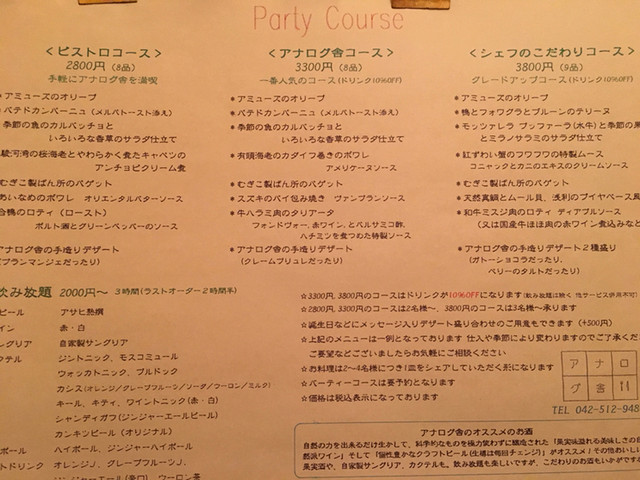 Party Course
<ビストロコース>
2800円 (8品)
手軽にアナログ舎を満喫
*アミューズのオリーブ
*パテドカンパーニュ (メルバトースト添え)
*季節の魚のカルパッチョと
いろいろな香草のサラダ仕立て
駿河湾の桜海老とやわらかく煮たキャベツの
アンチョビクリーム煮
むぎこ製ぱん所のバゲット
あいなめのポワレ オリエンタルバターソース
合鴨のロティ (ロースト)
ポルト酒とグリーンペッパーのソース
アナログ舎の手造りデザート
(ブランマンジェだったり)
<アナログ舎コース>
3300円 (8品)
一番人気のコース (ドリンク10%OFF)
*アミューズのオリーブ
*パテドカンパーニュ (メルバトースト添え)
*季節の魚のカルパッチョと
いろいろな香草のサラダ仕立て
*有頭海老のカダイフ巻きのポワレ
アメリケーヌソース
*むぎこ製ぱん所のバゲット
*スズキのパイ包み焼き ヴァンブランソース
*牛ハラミ肉のタリアータ
フォンドヴォー、赤ワイン、とバルサミコ酢、
ハチミツを煮つめた特製ソース
*アナログ舎の手造りデザート
(クレームブリュレだったり)
<シェフのこだわりコース>
3800円 (9品)
グレードアップコース (ドリンク10%OFF)
*アミューズのオリーブ
*鴨とフォワグラとプルーンのテリーヌ
*モッツァレラ ブッファーラ (水牛) と季節の果
とミラノサラミのサラダ仕立て
*紅ずわい蟹のフワフワの特製ムース
コニャックとカニのエキスのクリームソース
*むぎこ製ぱん所のバゲット
*天然真鯛とムール貝、浅利のブイヤベース風
*和牛ミスジ肉のロティ ディアブルソース
(又は国産牛ほほ肉の赤ワイン煮込みなど
*アナログ舎の手造りデザート2種盛り
(ガトーショコラだったり、
ベリーのタルトだったり)
飲み放題 2000円〜 3時間 (ラストオーダー2時間半)
ビール アサヒ熟撰
イン 赤・白
ングリア 自家製サングリア
クテル ジントニック、モスコミュール
ウォッカトニック、ブルドック
カシス (オレンジ/グレープフルーツ/ソーダ/ウーロン/ミルク)
キール、キティ、ワイントニック (赤・白)
シャンディガフ (ジンジャーエールビール)
カンキツビール (オリジナル)
ボール ハイボール、ジンジャーハイボール
トドリンク オレンジJ、グレープフルーツJ、
ジンジャーエール (辛口)、ウーロン茶
☆3300円、3800円のコースはドリンクが10%OFFになります (飲み放題は除く 他サービス併用不可)
☆2800円、3300円のコースは2名様〜、3800円のコースは3名様〜承ります
☆誕生日などにメッセージ入りデザート盛り合わせのご用意もできます (+500円)
☆上記のメニューは一例となっております 仕入や季節により変わりますのでご了承くだ
ご要望などございましたらお気軽にご相談ください
☆お料理は2〜4名様につき1皿をシェアしていただく形になります
☆パーティーコースは要予約となります
☆価格は税込表示になっております
アナロ
グ舎
TEL 042-512-948
アナログ舎のオススメのお酒
自然の力を出来るだけ生かして、科学的なものを極力使わずに醸造された「果実味溢れる美味しさの自
然派ワイン」そして「個性豊かなクラフトビール (生樽は毎回チェンジ)」がオススメ!その他おいしい
果実酒や、自家製サングリア、カクテルも。飲み放題も楽しいですが、こだわりのお酒もいかがですか